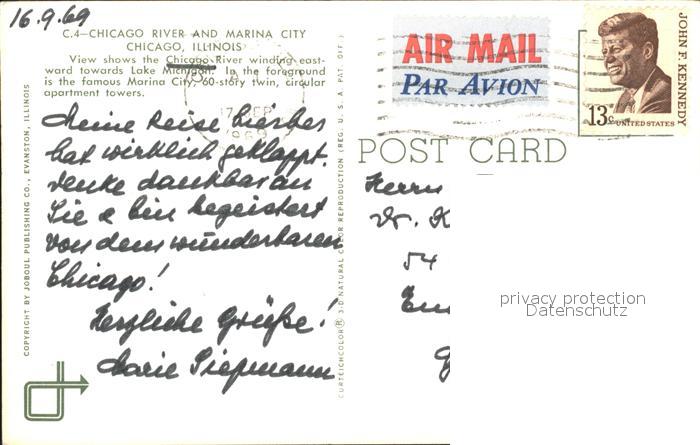 16.9.69
C.4—CHICAGO RIVER AND MARINA CITY
CHICAGO, ILLINOIS
View shows the Chicago River winding east-
ward towards Lake Michigan. In the foreground
is the famous Marina City, 60-story twin, circular
apartment towers.
Meine Reise hierher
hat wirklich geklappt.
Denke dankbar an
Sie & bin begeistert
von dem wunderbaren
Chicago!
Herzliche Grüße!
Marie Siepmann
COPYRIGHT BY JOBOUL PUBLISHING CO., EVANSTON, ILLINOIS
CURTEICHCOLOR® 3-D NATURAL COLOR REPRODUCTION (REG. U.S.A. PAT. OFF.)
AIR MAIL
PAR AVION
JOHN F. KENNEDY
13c UNITED STATES
17 SEP
1969
POST CARD
Herrn
Dr. K
54
privacy protection
Datenschutz